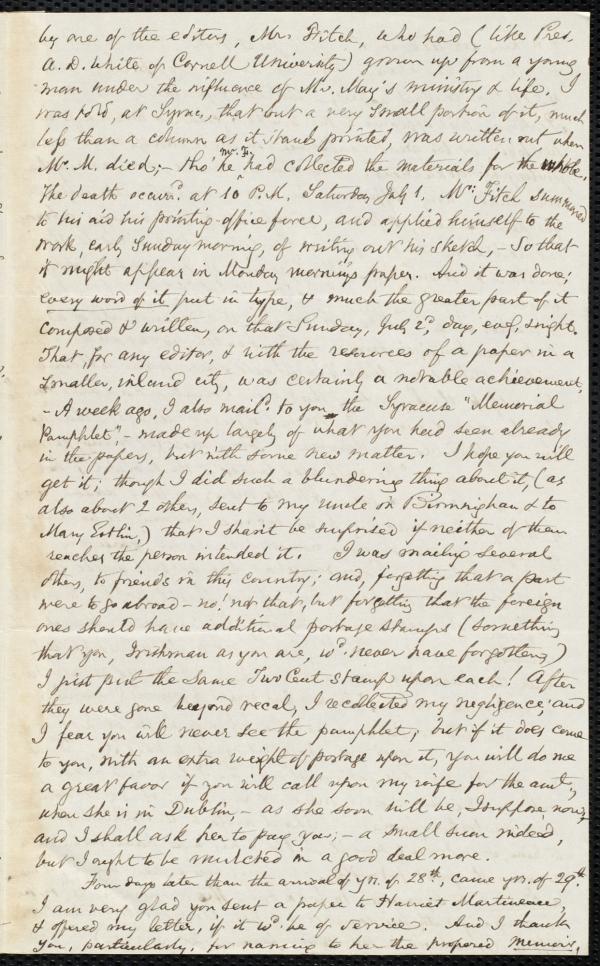 by one of the editors, Mr. Fitch, who had (like Pres.
A. D. White of Cornell University) grown up from a young
man under the influence of Mr. May's ministry & life. I
was told, at Syrac., that but a very small portion of it, much
less than a column as it stands printed, was written out when
Mr. M. died; – tho' he Mr. F. had collected the materials for the whole.
The death occurrd. at 10 P.M. Saturday July 1. Mr. Fitch summoned
to his aid his printing-office force, and applied himself to the
work, early Sunday morning, of writing out his sketch, – so that
it might appear in Monday morning's paper. And it was done;
every word of it put in type, & much the greater part of it
composed & written, on that Sunday, July 2d, day, eve, & night.
That, for any editor, & with the resources of a paper in a
smaller, inland city, was certainly a notable achievement.
– A week ago, I also maild. to you the Syracuse "Memorial
Pamphlet", – made up largely of what you had seen already
in the papers, but with some new matter. I hope you will
get it; though I did such a blundering thing about it, (as
also about 2 others, sent to my uncle in Birmingham & to
Mary Estlin,) that I shan't be surprised if neither of them
reaches the person intended it. I was mailing several
others, to friends in this country; and, forgetting that a part
were to go abroad – no! not that, but forgetting that the foreign
ones should have additional postage stamps (something
that you, Irishman as you are, wd. never have forgotten,)
I just put the same Two Cent stamp upon each! After
they were gone beyond recal, I recollected my negligence; and
I fear you will never see the pamphlet; but if it does come
to you, with an extra weight of postage upon it, you will do me
a great favor if you will call upon my wife for the amt.,
when she is in Dublin, – as she soon will be, I suppose, now,
and I shall ask her to pay you; – a small sum indeed,
but I ought to be mulcted in a good deal more.
Four days later than the arrival of yrs. of 28th, came yrs. of 29th.
I am very glad you sent a paper to Harriet Martineau,
& offered my letter, if it wd. be of service. And I thank
you, particularly, for naming to her the proposed Memoir,